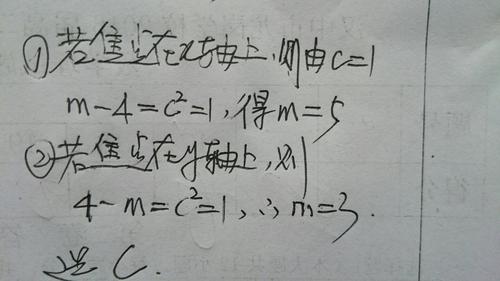 ①若焦点在x轴上,则由c=1
m-4=c²=1,得m=5
②若焦点在y轴上,则
4-m=c²=1,∴m=3.
选C.